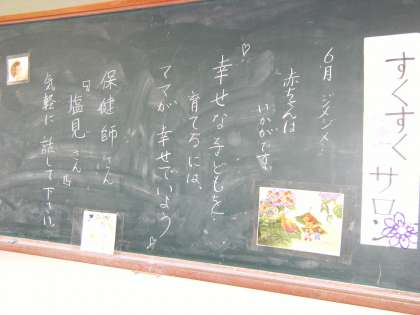 すくすくサロン
6月
赤ちゃんは
いかがです。
幸せな子どもを
育てるには、
ママが幸せでいよう
保健師さん
塩見さん
気軽に話して下さい。